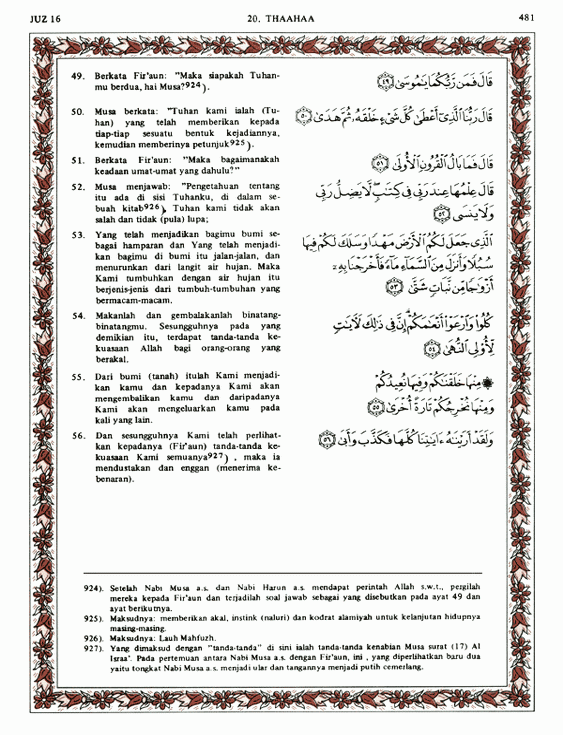 JUZ 16
20. THAAHAA
481
49. Berkata Fir'aun: "Maka siapakah Tuhan-
mu berdua, hai Musa?924).
50. Musa berkata: "Tuhan kami ialah (Tu-
han) yang telah memberikan kepada
tiap-tiap sesuatu bentuk kejadiannya,
kemudian memberinya petunjuk925).
51. Berkata Fir'aun: "Maka bagaimanakah
keadaan umat-umat yang dahulu?"
52. Musa menjawab: "Pengetahuan tentang
itu ada di sisi Tuhanku, di dalam se-
buah kitab926), Tuhan kami tidak akan
salah dan tidak (pula) lupa;
53. Yang telah menjadikan bagimu bumi se-
bagai hamparan dan Yang telah menjadi-
kan bagimu di bumi itu jalan-jalan, dan
menurunkan dari langit air hujan. Maka
Kami tumbuhkan dengan air hujan itu
berjenis-jenis dari tumbuh-tumbuhan yang
bermacam-macam.
54. Makanlah dan gembalakanlah binatang-
binatangmu. Sesungguhnya pada yang
demikian itu, terdapat tanda-tanda ke-
kuasaan Allah bagi orang-orang yang
berakal.
55. Dari bumi (tanah) itulah Kami menjadi-
kan kamu dan kepadanya Kami akan
mengembalikan kamu dan daripadanya
Kami akan mengeluarkan kamu pada
kali yang lain.
56. Dan sesungguhnya Kami telah perlihat-
kan kepadanya (Fir'aun) tanda-tanda ke-
kuasaan Kami semuanya927) , maka ia
mendustakan dan enggan (menerima ke-
benaran).
قَالَ فَمَن رَّبُّكُمَا يَٰمُوسَىٰ ﴿٤٩﴾
قَالَ رَبُّنَا الَّذِىٓ أَعْطَىٰ كُلَّ شَىْءٍ خَلْقَهُۥ ثُمَّ هَدَىٰ ﴿٥٠﴾
قَالَ فَمَا بَالُ الْقُرُونِ الْأُولَىٰ ﴿٥١﴾
قَالَ عِلْمُهَا عِندَ رَبِّى فِى كِتَٰبٍ لَّا يَضِلُّ رَبِّى
وَلَا يَنسَى ﴿٥٢﴾
الَّذِى جَعَلَ لَكُمُ الْأَرْضَ مَهْدًا وَسَلَكَ لَكُمْ فِيهَا
سُبُلًا وَأَنزَلَ مِنَ السَّمَآءِ مَآءً فَأَخْرَجْنَا بِهِۦٓ
أَزْوَٰجًا مِّن نَّبَاتٍ شَتَّىٰ ﴿٥٣﴾
كُلُوا۟ وَارْعَوْا۟ أَنْعَٰمَكُمْ إِنَّ فِى ذَٰلِكَ لَءَايَٰتٍ
لِّأُو۟لِى النُّهَىٰ ﴿٥٤﴾
۞ مِنْهَا خَلَقْنَٰكُمْ وَفِيهَا نُعِيدُكُمْ
وَمِنْهَا نُخْرِجُكُمْ تَارَةً أُخْرَىٰ ﴿٥٥﴾
وَلَقَدْ أَرَيْنَٰهُ ءَايَٰتِنَا كُلَّهَا فَكَذَّبَ وَأَبَىٰ ﴿٥٦﴾
924). Setelah Nabi Musa a.s. dan Nabi Harun a.s. mendapat perintah Allah s.w.t., pergilah
mereka kepada Fir'aun dan terjadilah soal jawab sebagai yang disebutkan pada ayat 49 dan
ayat berikutnya.
925). Maksudnya: memberikan akal, instink (naluri) dan kodrat alamiyah untuk kelanjutan hidupnya
masing-masing.
926). Maksudnya: Lauh Mahfuzh.
927). Yang dimaksud dengan "tanda-tanda" di sini ialah tanda-tanda kenabian Musa surat (17) Al
Israa'. Pada pertemuan antara Nabi Musa a.s. dengan Fir'aun, ini , yang diperlihatkan baru dua
yaitu tongkat Nabi Musa a.s. menjadi ular dan tangannya menjadi putih cemerlang.